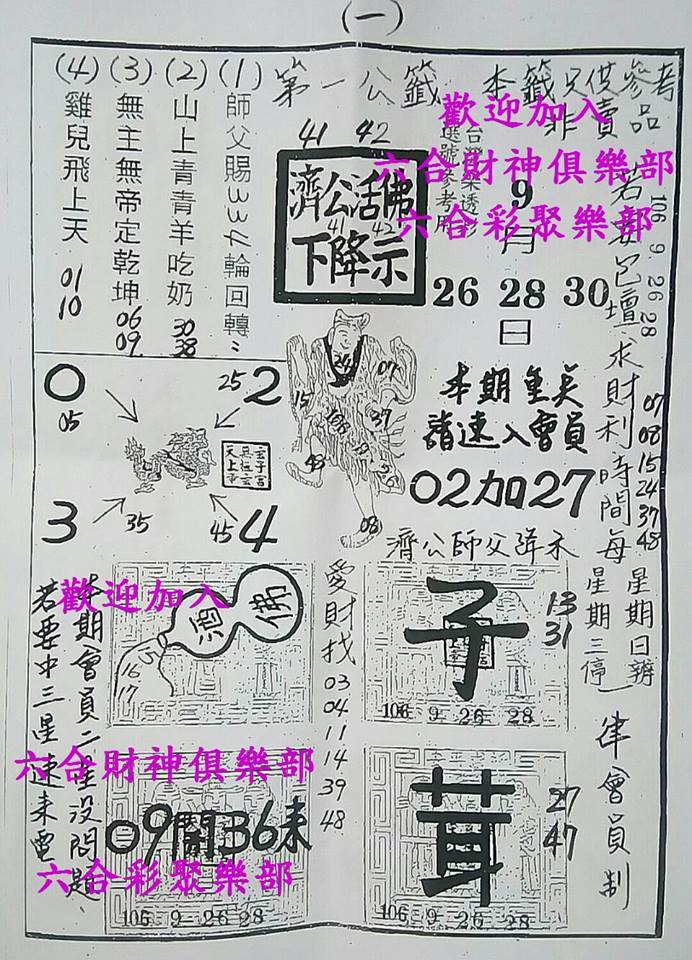 (一)
第一公籤
本籤只供參考
非賣品
41 42
濟公活佛
41 42
下降示
台灣樂透彩
選號參考用
9
月
26 28 30
日
歡迎加入
六合財神俱樂部
六合彩聚樂部
(1)
師父賜3334輪回轉
(2)
山上青青羊吃奶
30
38
(3)
無主無帝定乾坤
06
09
(4)
雞兒飛上天
01
10
106 9. 26 28
若要包壇求財利時間每
星期日辦
星期三停
一律會員制
07
08
15
24
37
48
0
05
25
2
3
35
45
4
24
07
15
37
48
08
本期重美
請速入會員
02加27
濟公師父降示
歡迎加入
酒
佛
16
17
本期會員二星沒問題
若要中三星速來電
愛財找
03
04
11
14
39
48
子
13
31
106 9 26 28
六合財神俱樂部
09開36來
六合彩聚樂部
106 9 26 28
茸
27
47
106 9 26 28